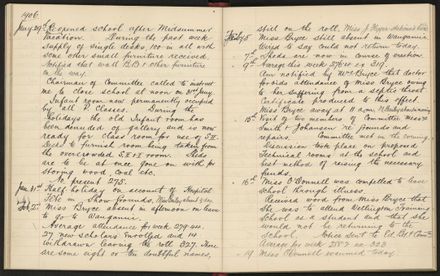 1906.
Jany 29th Reopened school after Midsummer
vacation. During the past week
supply of single desks, 100 in all with
some other small furniture received.
Notified that wall B.B's & other furniture
on the way.
Chairman of Committee called to instruct
me to close school at noon on 31st Jany.
Infant room now permanently occupied
by all P. Classes. During the
Holidays the old Infant room has
been denuded of gallery and is now
ready for class room for use of S.
Desks to furnish room being taken from
the overcrowded room. Sheds
are to be at once gone on with for
storing wood, coal etc.
At present 275.
Jan 31st Half holiday on account of Hospital
Fête in Show grounds.
Feb 2nd Miss Bryce absent in afternoon on leave
to go to Wanganui.
Average attendance for week 279.44.
27 new scholars enrolled and 14
withdrawn leaving the roll 327. There
are some eight or ten doubtful names,
still on the roll.
Feby 5 Miss Bryce still absent in Wanganui
Wired to say could not return today.
7th Sheds are now in course of erection
9th Average this week
Am notified by Mrs Bryce that doctor
forbids attendance of Miss Bryce owing
to her suffering from a septic throat.
Certificate produced to this effect.
Miss Bryce away
15th Visit of two members of Committee Messrs
Smith & Johnson re pounds and
repairs. Committee met in the evening.
Discussion took place on proposed
Technical rooms at the school and
best method of raising the necessary
funds.
16th Miss O'Connell was compelled to leave
School through illness
Received word from Miss Bryce that
she was to attend Wellington Training
School as a student and that she
would not be returning to the
School.
Average for week
19 Miss O'Connell resumed today.